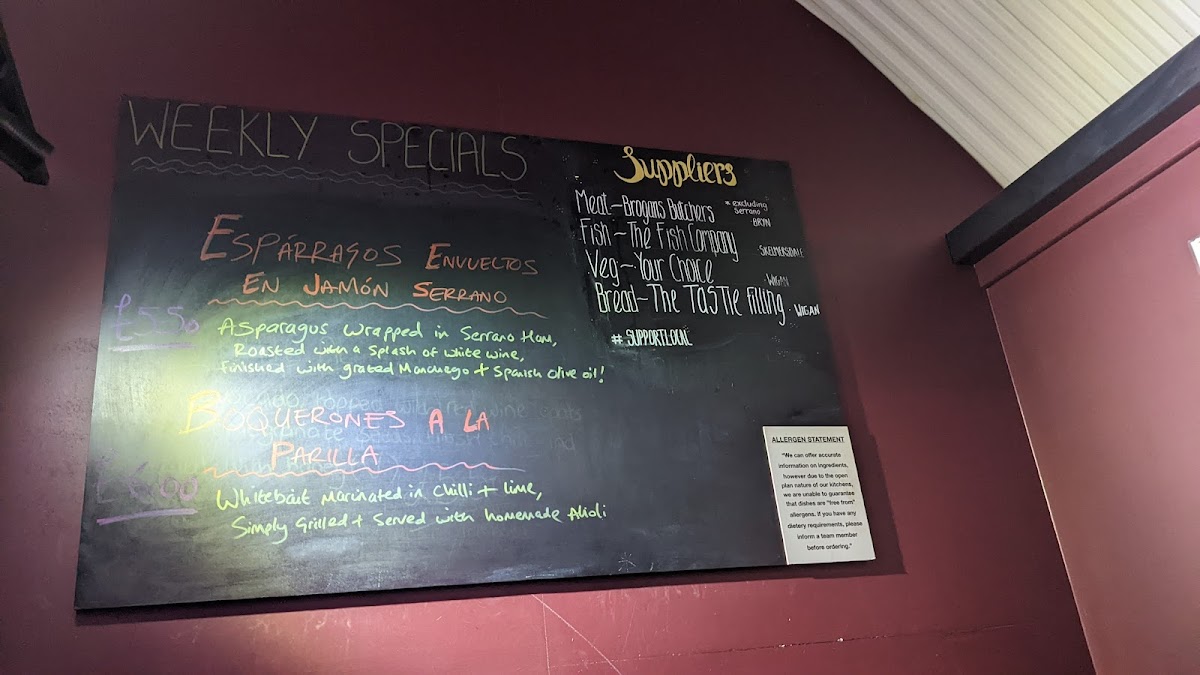 WEEKLY SPECIALS
ESPÁRRAGOS ENVUELTOS
EN JAMÓN SERRANO
£5.50
Asparagus wrapped in Serrano Ham,
Roasted with a splash of white wine,
finished with grated Manchego + Spanish Olive oil!
BOQUERONES A LA
PARILLA
£6.00
Whitebait Marinated in Chilli + lime,
Simply Grilled + Served with homemade Alioli
Suppliers
Meat - Brogans Butchers * excluding
Serrano
- BRYN
Fish - The Fish Company - SKELMERSDALE
Veg - Your Choice - WIGAN
Bread - The TASTie Filling - WIGAN
# SUPPORTLOCAL
ALLERGEN STATEMENT
"We can offer accurate
information on ingredients,
however due to the open
plan nature of our kitchens,
we are unable to guarantee
that dishes are "free from"
allergens. If you have any
dietery requirements, please
inform a team member
before ordering."